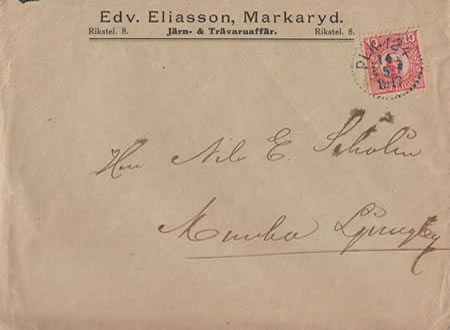 Edv. Eliasson, Markaryd.
Rikstel. 8. Järn- & Trävaruaffär. Rikstel. 8.
PLK 12
14
5
Nil E. Scholin
Munka Ljungby